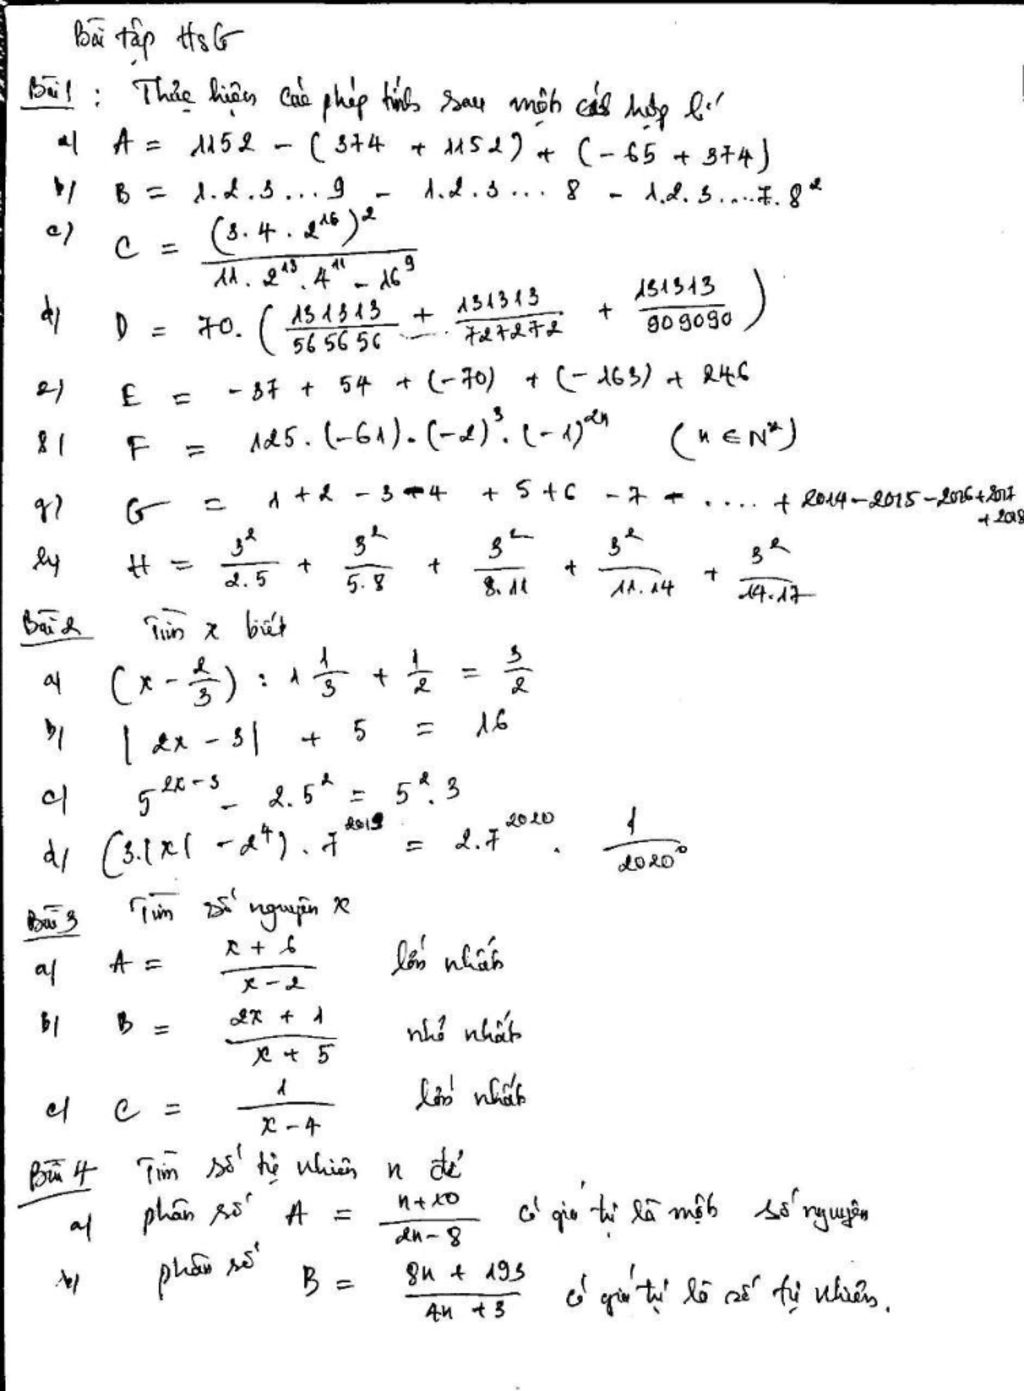 Bài tập HSG
Bài 1 : Thực hiện các phép tính sau một cách hợp lí
a) A = 1152 - (374 + 1152) + (-65 + 374)
b) B = 1.2.3...9 - 1.2.3...8 - 1.2.3....7.8²
c) C = (3.4.2¹⁶)² / (11.2¹³.4¹¹ - 16⁹)
d) D = 70.(131313/565656 + 131313/727272 + 131313/909090)
e) E = -37 + 54 + (-70) + (-163) + 246
f) F = 125.(-61).(-2)³.(-1)²ⁿ (n ∈ N*)
g) G = 1 + 2 - 3 - 4 + 5 + 6 - 7 - .... + 2014 - 2015 - 2016 + 2017 + 2018
h) H = 3²/2.5 + 3²/5.8 + 3²/8.11 + 3²/11.14 + 3²/14.17
Bài 2 Tìm x biết
a) (x - 2/3) : 1 1/3 + 1/2 = 3/2
b) |2x - 3| + 5 = 16
c) 5²ˣ⁻³ - 2.5² = 5².3
d) (3.|x| - 2⁴).7²⁰¹⁹ = 2.7²⁰²⁰. 1/2020⁰
Bài 3 Tìm số nguyên x
a) A = (x + 6)/(x - 2) lớn nhất
b) B = (2x + 1)/(x + 5) nhỏ nhất
c) C = 1/(x - 4) lớn nhất
Bài 4 Tìm số tự nhiên n để
a) phân số A = (n + 10)/(2n - 8) có giá trị là một số nguyên
b) phân số B = (8n + 193)/(4n + 3) có giá trị là số tự nhiên.